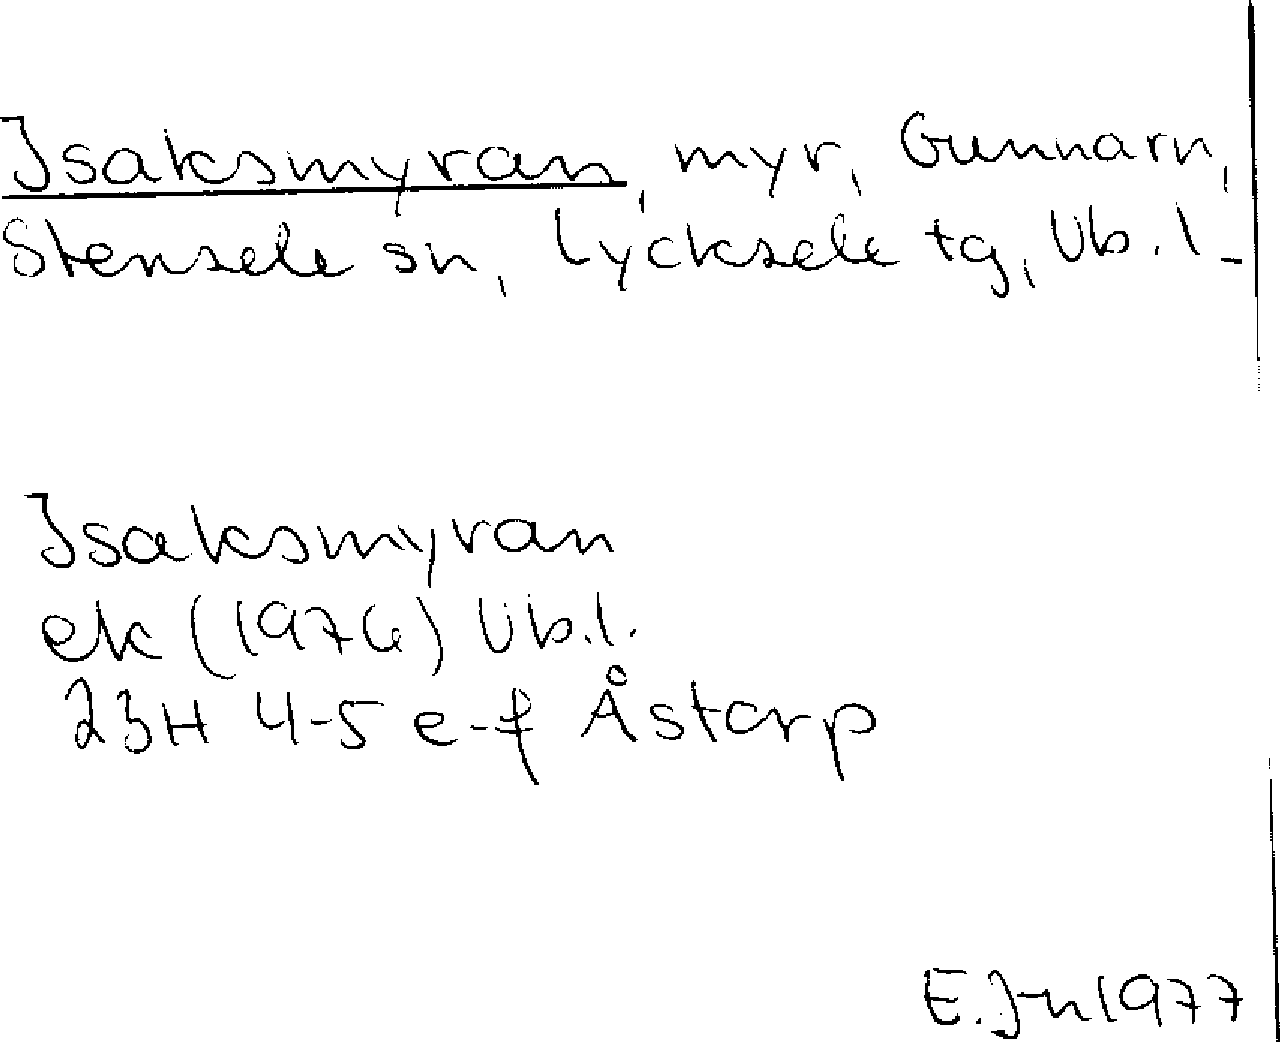 Isaksmyran, myr, Gunnarn,
Stensele sn, Lycksele tg, Vb.l.
Isaksmyran
ek (1976) Vb.l.
23H 4-5 e-f Åstorp
E.Jn 1977